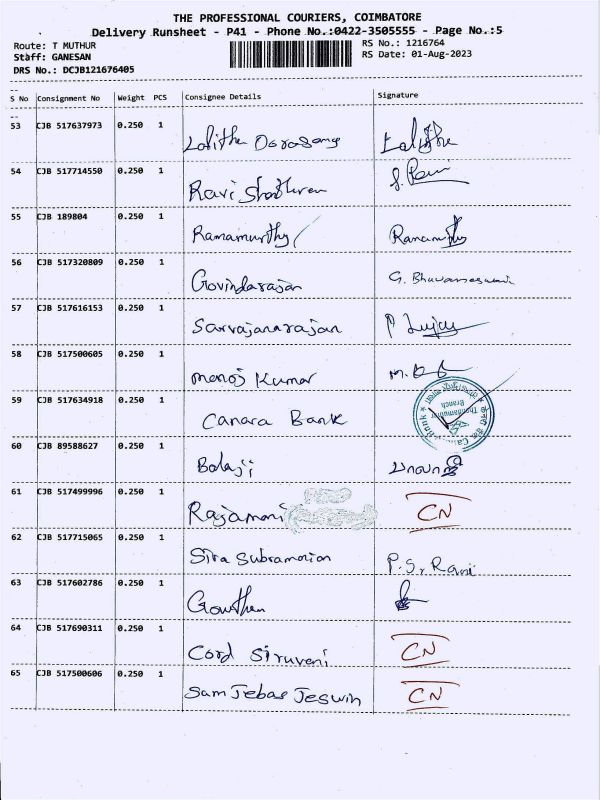 THE PROFESSIONAL COURIERS, COIMBATORE
Delivery Runsheet - P41 - Phone No.:0422-3505555 - Page No.:5
Route: T MUTHUR
Staff: GANESAN
DRS No.: DCJB121676405
RS No.: 1216764
RS Date: 01-Aug-2023
S No Consignment No Weight PCS Consignee Details Signature
53 CJB 517637973 0.250 1 Lalitha Lalitha
54 CJB 517714550 0.250 1 Ravi
55 CJB 189804 0.250 1 Ramamurthy
56 CJB 517320809 0.250 1 Govindarajan G. Bhuvaneswari
57 CJB 517616153 0.250 1 Sarvajanarajan
58 CJB 517500605 0.250 1 Manoj Kumar
59 CJB 517634918 0.250 1 Canara Bank
60 CJB 89588627 0.250 1 Balaji
61 CJB 517499996 0.250 1 Rajamani CN
62 CJB 517715065 0.250 1 Siva Subramanian P.S. Rani
63 CJB 517602786 0.250 1 Gowtham
64 CJB 517690311 0.250 1 Cord Siruvani CN
65 CJB 517500606 0.250 1 Sam Jebas Jeswin CN